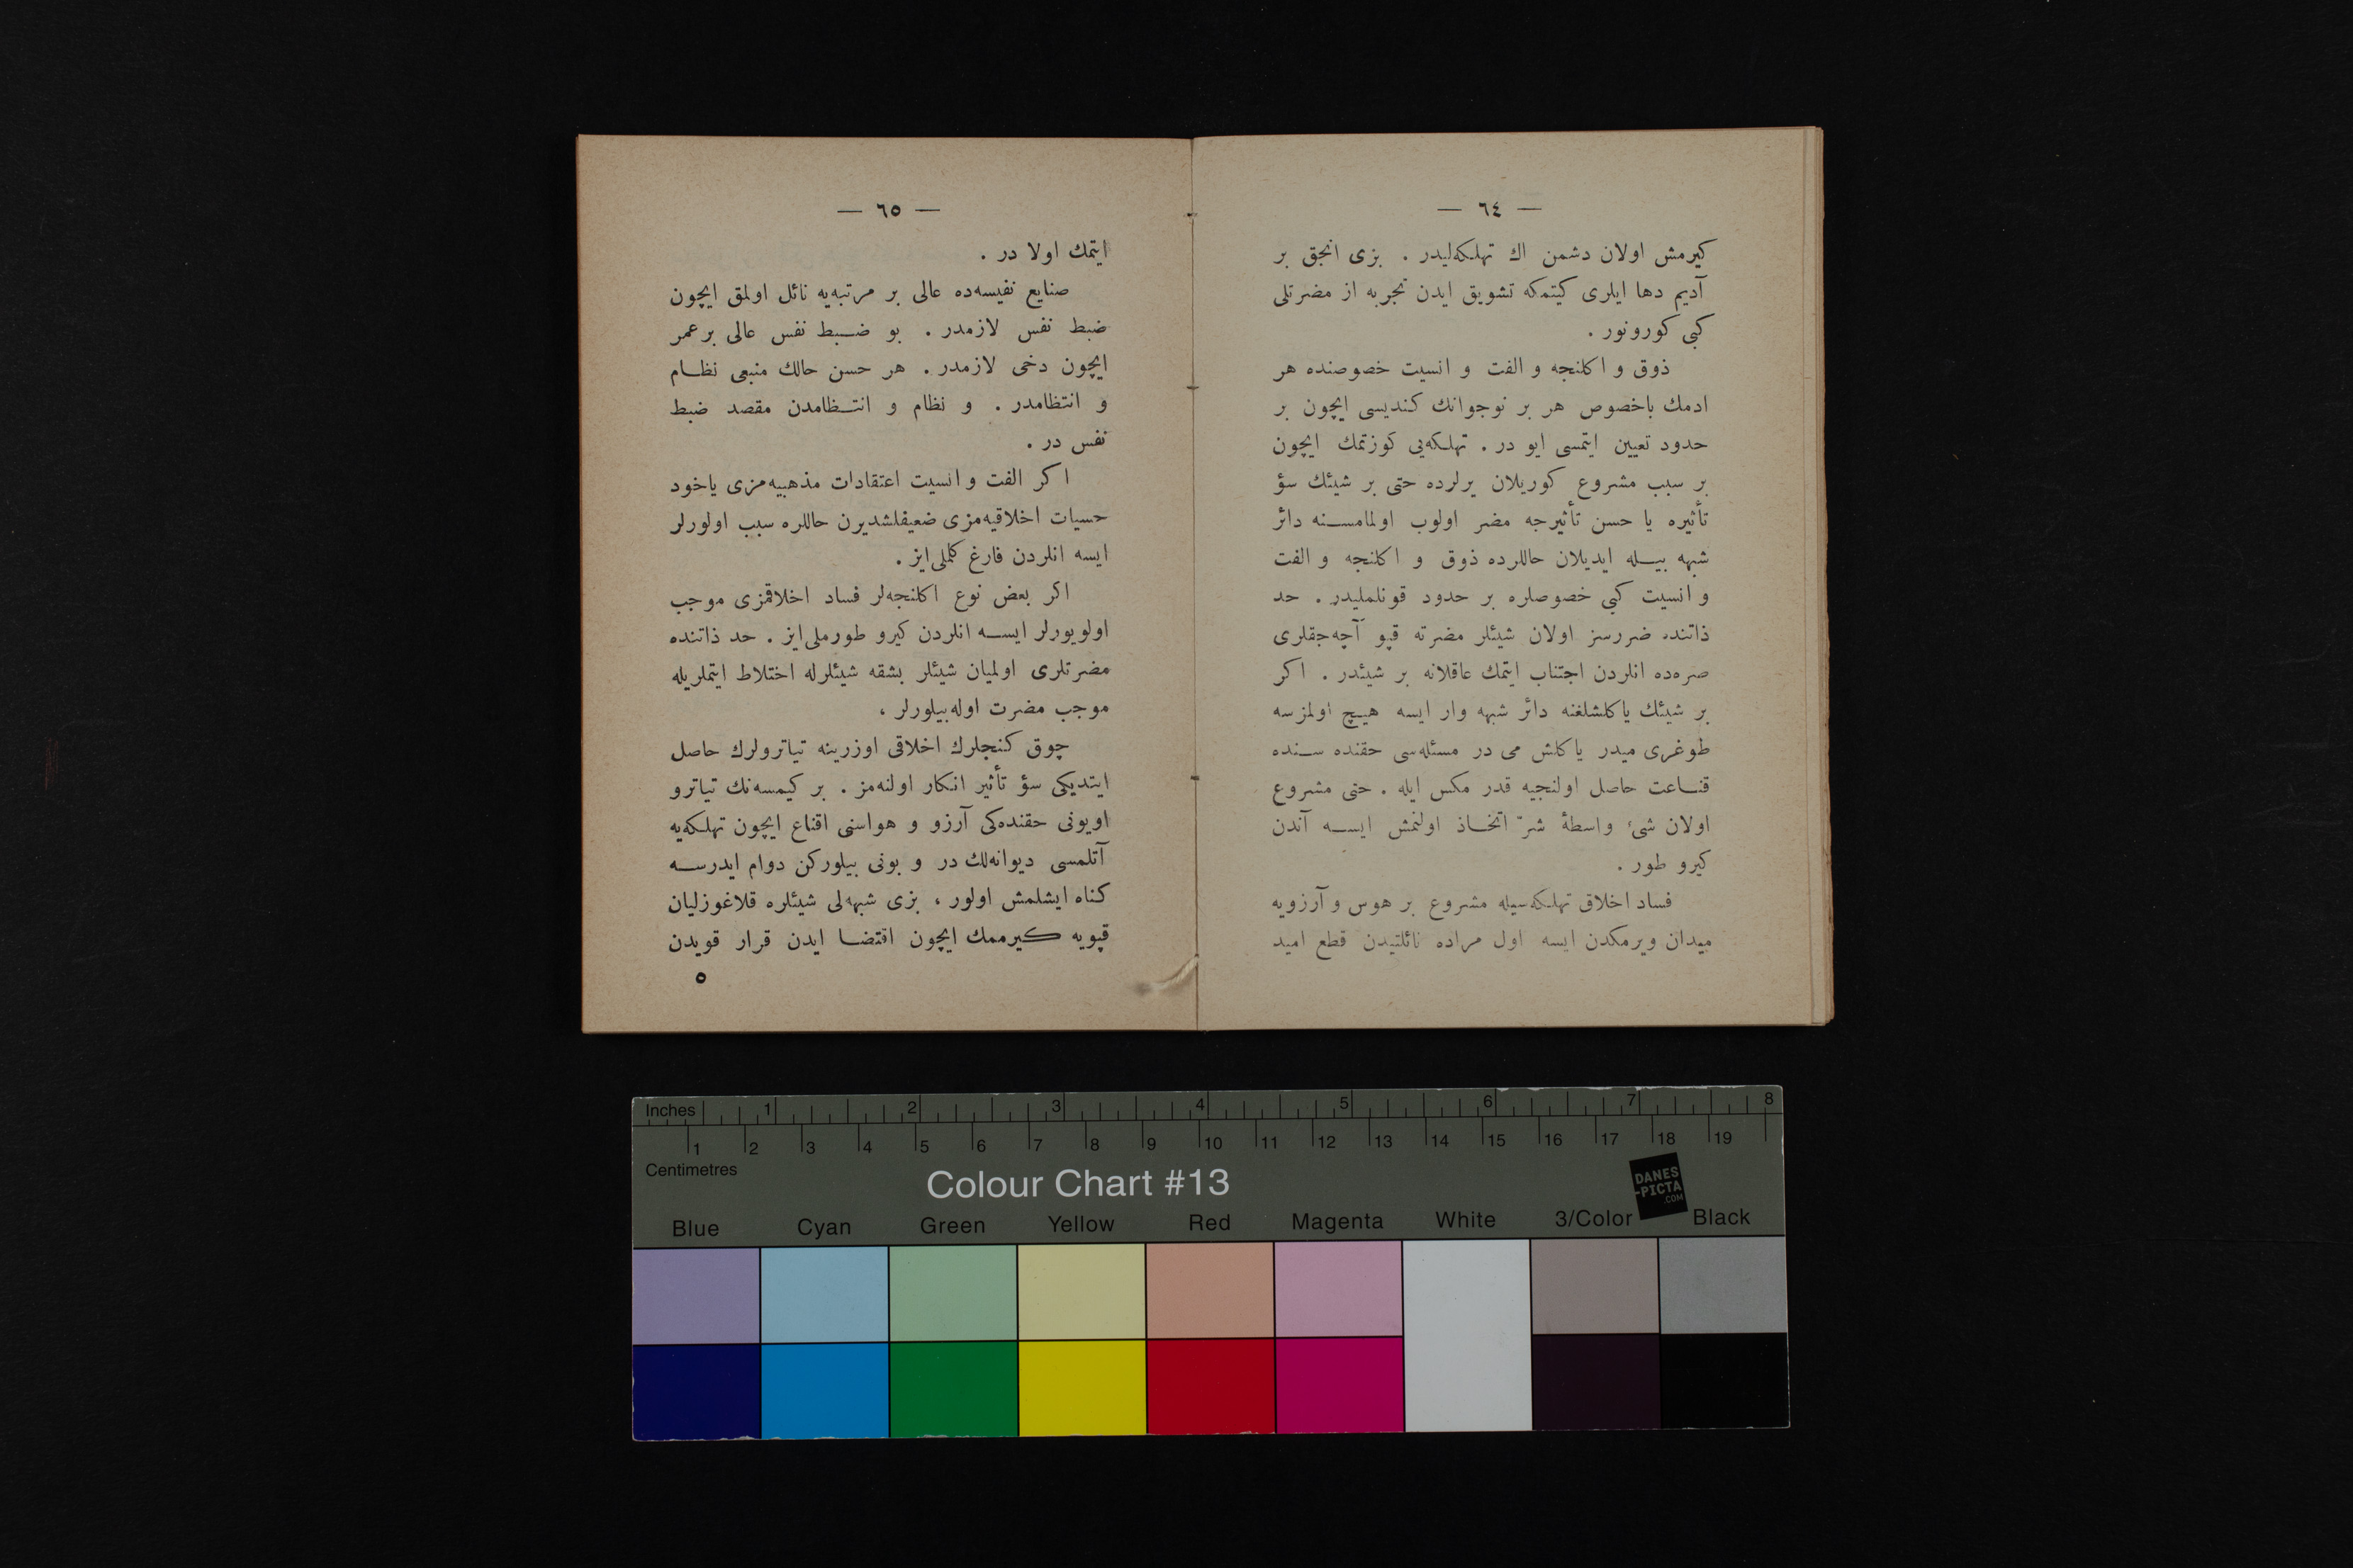 — ٦٤ —
كیرمش اولان دشمن اك تهلكه‌لیدر . بزی انجق بر
آدیم دها ایلری كیتمكه تشویق ایدن تجربه از مضرتلی
كبی كورونور .
ذوق و اكلنجه و الفت و انسیت خصوصنده هر
ادمك باخصوص هر بر نوجوانك كندیسی ایچون بر
حدود تعیین ایتمسی ایو در . تهلكه‌یی كوزتمك ایچون
بر سبب مشروع كوریلان یرلرده حتی بر شیئك سؤ
تأثیره یا حسن تأثیرجه مضر اولوب اولمامسنه دائر
شبهه بیله ایدیلان حاللرده ذوق و اكلنجه و الفت
و انسیت كبی خصوصلره بر حدود قونلملیدر . حد
ذاتنده ضررسز اولان شیئلر مضرته قپو آچه‌جقلری
صره‌ده انلردن اجتناب ایتمك عاقلانه بر شیئدر . اكر
بر شیئك یاكلشلغنه دائر شبهه وار ایسه هیچ اولمزسه
طوغری میدر یاكلش می در مسئله‌سی حقنده سنده
قناعت حاصل اولنجیه قدر مكس ایله . حتی مشروع
اولان شیٔ واسطهٔ شرّ اتخاذ اولنمش ایسه آندن
كیرو طور .
فساد اخلاق تهلكه‌سیله مشروع بر هوس و آرزویه
میدان ویرمكدن ایسه اول مراده نائلتیدن قطع امید
— ٦٥ —
ایتمك اولا در .
صنایع نفیسه‌ده عالی بر مرتبه‌یه نائل اولمق ایچون
ضبط نفس لازمدر . بو ضبط نفس عالی بر عمر
ایچون دخی لازمدر . هر حسن حالك منبعی نظام
و انتظامدر . و نظام و انتظامدن مقصد ضبط
نفس در .
اكر الفت و انسیت اعتقادات مذهبیه‌مزی یاخود
حسیات اخلاقیه‌مزی ضعیفلشدیرن حاللره سبب اولورلر
ایسه انلردن فارغ كلملی‌ایز .
اكر بعض نوع اكلنجه‌لر فساد اخلاقمزی موجب
اولویورلر ایسه انلردن كیرو طورملی‌ایز . حد ذاتنده
مضرتلری اولمیان شیئلر بشقه شیئلرله اختلاط ایتملریله
موجب مضرت اوله‌بیلورلر ،
چوق كنجلرك اخلاقی اوزرینه تیاترولرك حاصل
ایتدیكی سؤ تأثیر انكار اولنه‌مز . بر كیمسه‌نك تیاترو
اویونی حقنده‌كی آرزو و هواسنی اقناع ایچون تهلكه‌یه
آتلمسی دیوانه‌لك در و بونی بیلوركن دوام ایدرسه
كناه ایشلمش اولور ، بزی شبهه‌لی شیئلره قلاغوزلیان
قپویه كیرممك ایچون اقتضا ایدن قرار قویدن
٥
Inches 1 2 3 4 5 6 7 8
1 2 3 4 5 6 7 8 9 10 11 12 13 14 15 16 17 18 19
Centimetres
Colour Chart #13
DANES
-PICTA
.COM
Blue Cyan Green Yellow Red Magenta White 3/Color Black